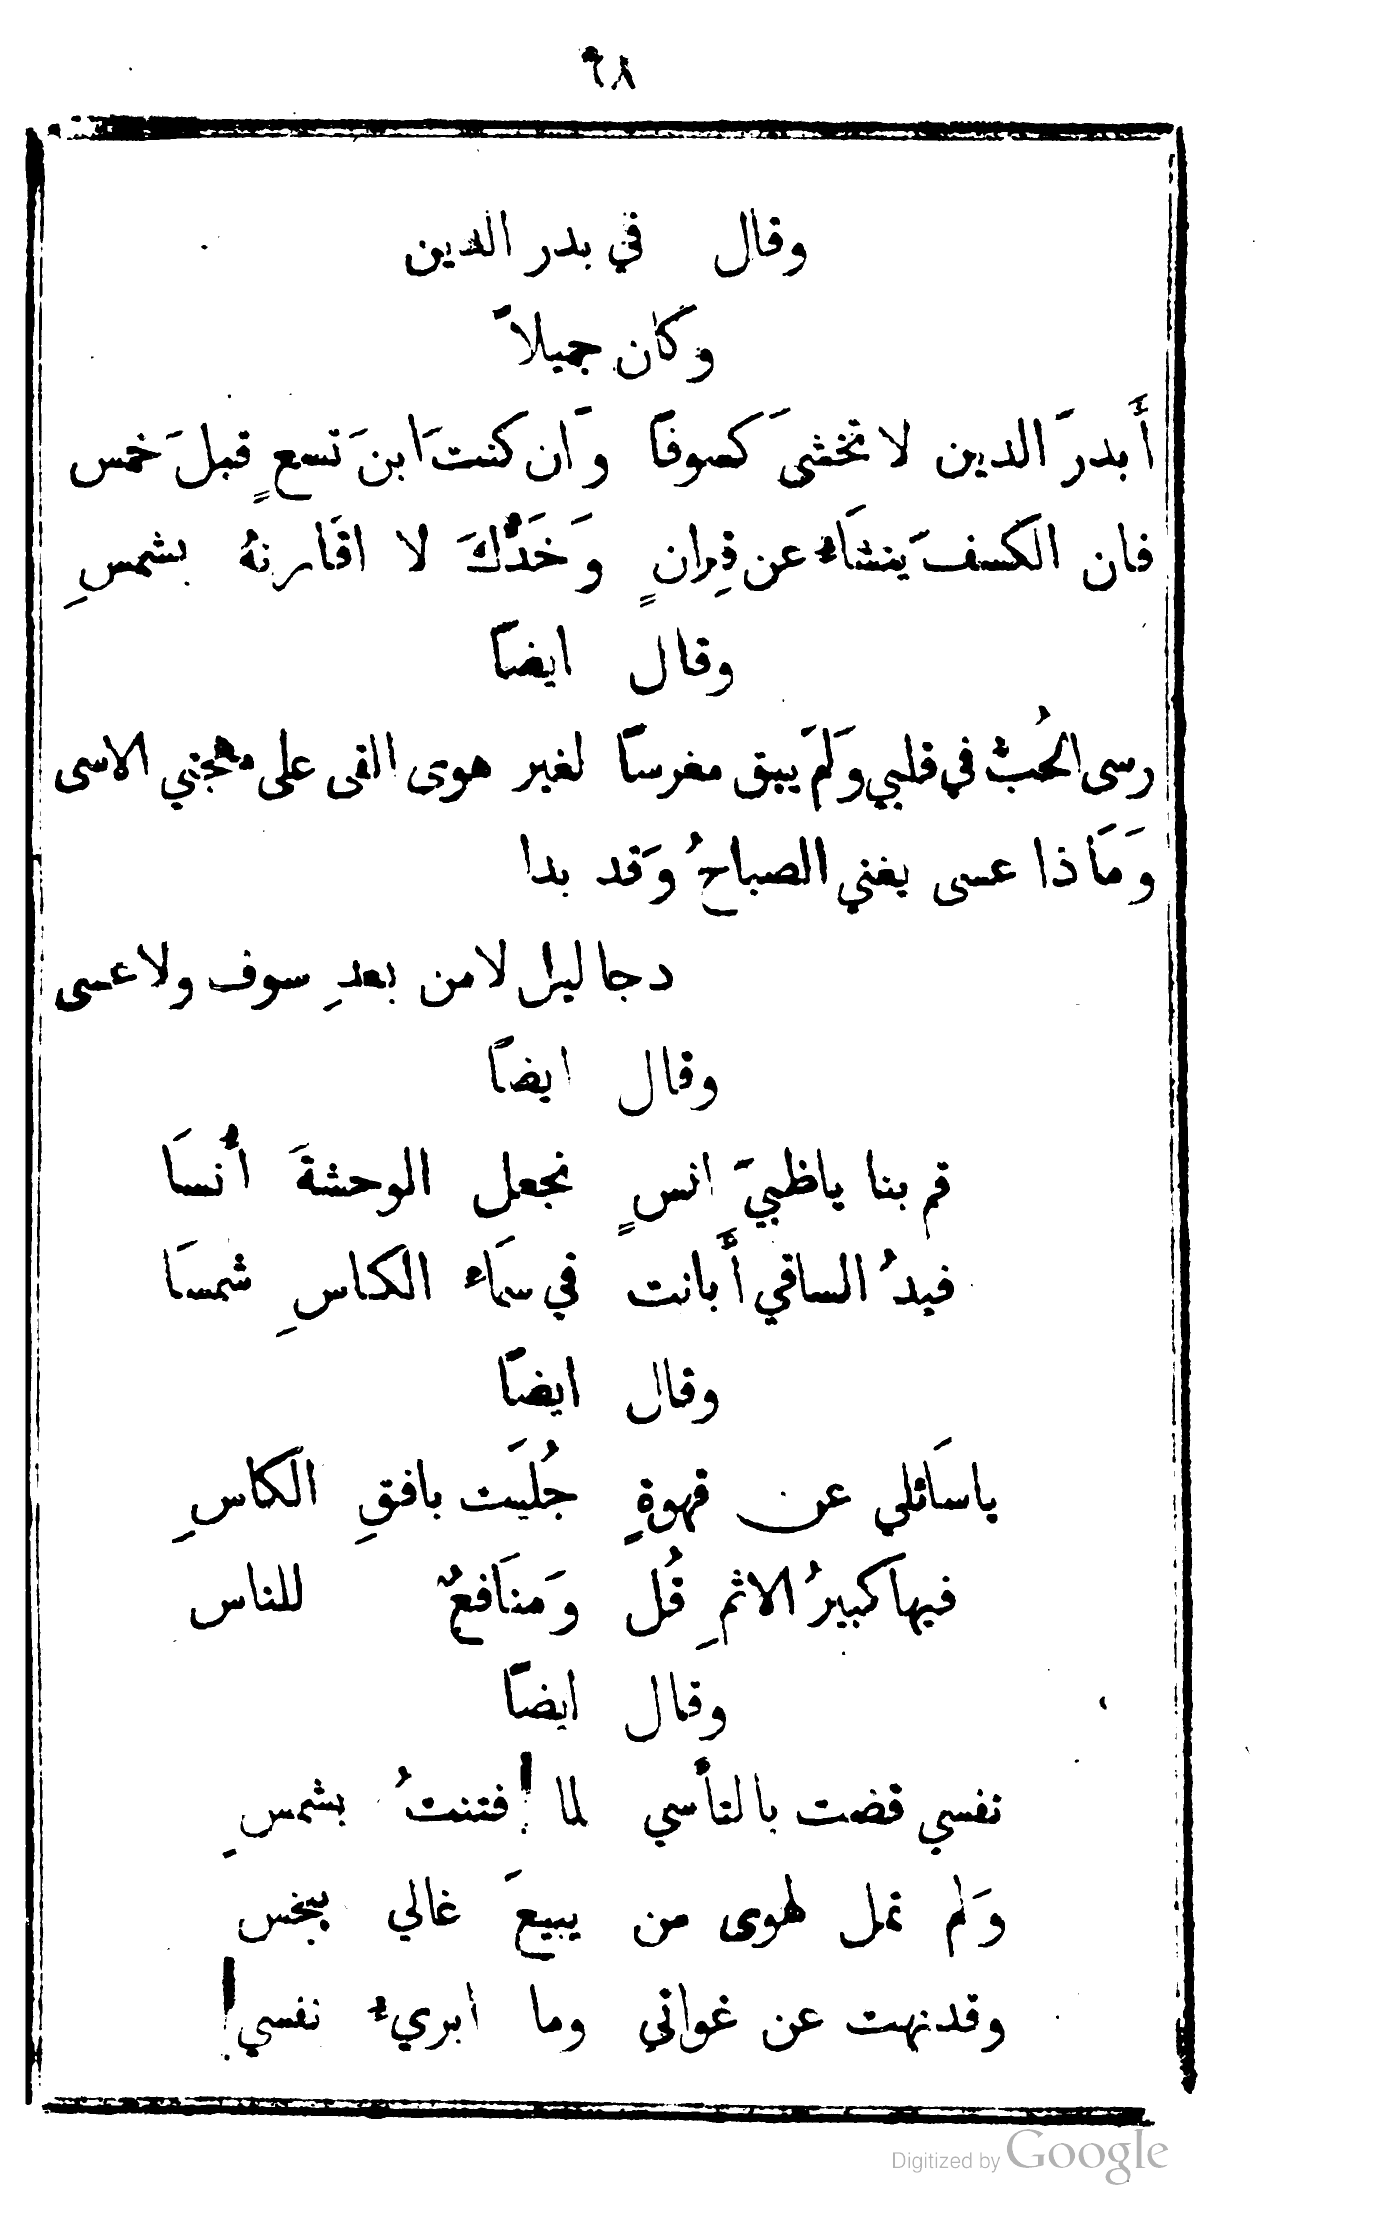 ٦٨
وقال في بدر الدين
وكان جميلاً
أَبدرَ الدين لا تخشىَ كسوفًا وَان كنتَ ابنَ تسعٍ قبلَ خمس
فان الكسفَ ينشاء عن قِرانٍ وَخَدُّكَ لا اقارنهُ بشمسِ
وقال ايضاً
رسى الحُبُّ في قلبي وَلَم يبق مغرساً لغير هوى القى على مهجتي الاسى
وَمَاذا عسى يغني الصباحُ وَقد بدا
دجا ليل لا من بعدِ سوف ولا عسى
وقال ايضاً
قم بنا ياظبيَ انسٍ نجعل الوحشةَ أُنسَا
فيدُ الساقي أَبانت في سمَاء الكاسِ شمسَا
وقال ايضاً
ياسَائلي عن قهوةٍ جُليَت بافقِ الكاسِ
فيها كبيرُ الاثمِ قُل وَمنَافعٌ للناس
وقال ايضاً
نفسي قضت بالتأسي لما ! فتنتُ بشمسِ
وَلم تمل لهوى من يبيعَ غالي ببخس
وقد نهت عن غواني وما ابريء نفسي !
Digitized by Google